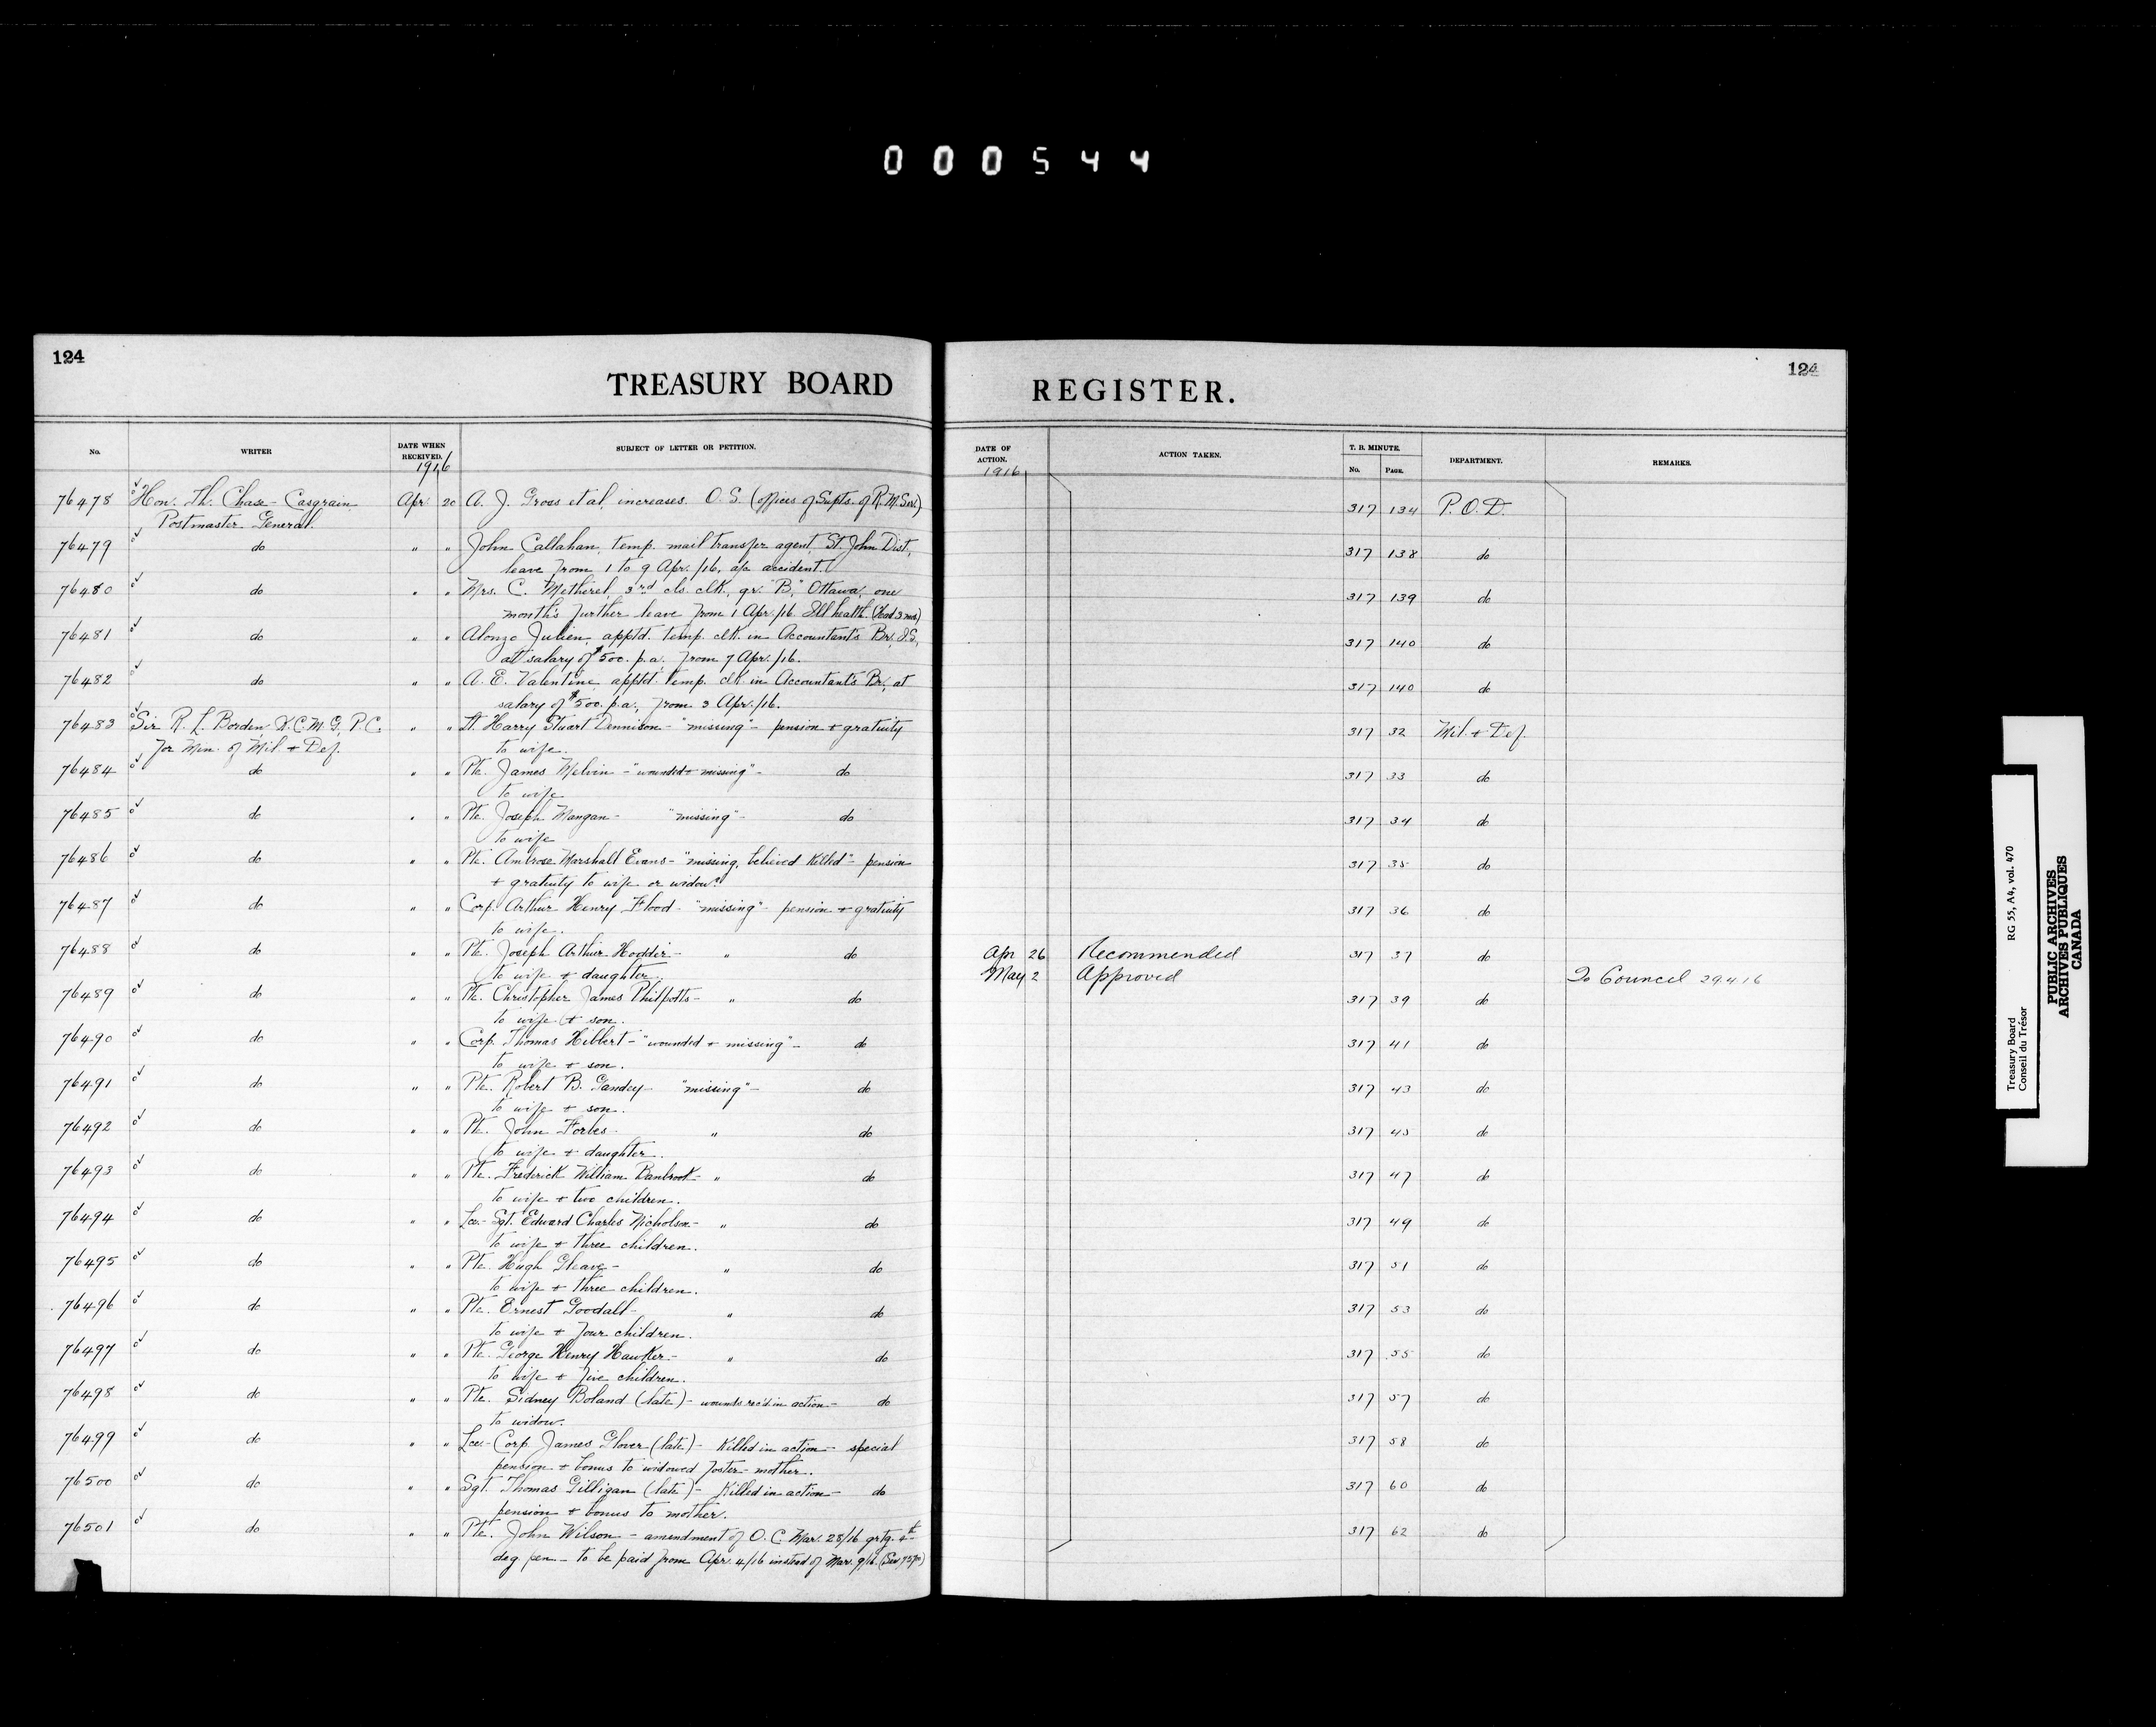 000544
124
TREASURY BOARD
No. WRITER DATE WHEN RECEIVED. SUBJECT OF LETTER OR PETITION.
1916
76478 Hon. Th. Chase-Casgrain Apr. 20 A. J. Gross et al, increases. O.S. (offices of Supts. of R.M.Ser.)
Postmaster General.
76479 do " " John Callahan, temp. mail transfer agent, St. John Dist,
leave from 1 to 9 Apr./16, a/c accident.
76480 do " " Mrs. C. Metherel, 3rd cls. clk., gr. "B," Ottawa, one
month's further leave from 1 Apr./16. Ill health. (Had 3 mos)
76481 do " " Alonzo Julien, apptd. temp. clk. in Accountant's Br., I.S.,
at salary of $500. p.a., from 7 Apr./16.
76482 do " " A. E. Valentine apptd. temp. clk. in Accountant's Br., at
salary of $500. p.a., from 3 Apr./16.
76483 Sir R. L. Borden, K.C.M.G., P.C. " " Lt. Harry Stuart Dennison - "missing" - pension + gratuity
for Min. of Mil. + Def. to wife.
76484 do " " Pte. James Melvin - "wounded + missing" - do
to wife
76485 do " " Pte. Joseph Mangan - "missing" - do
to wife
76486 do " " Pte. Ambrose Marshall Evans - "missing, believed killed" - pension
+ gratuity to wife or widow.
76487 do " " Corp. Arthur Henry Flood - "missing" - pension + gratuity
to wife.
76488 do " " Pte. Joseph Arthur Hodder - " do
to wife + daughter.
76489 do " " Pte. Christopher James Philpotts - " do
to wife + son.
76490 do " " Corp. Thomas Hibbert - "wounded + missing" - do
to wife + son.
76491 do " " Pte. Robert B. Gandey - "missing" - do
to wife + son.
76492 do " " Pte. John Forbes - " do
to wife + daughter.
76493 do " " Pte. Frederick William Banbrook - " do
to wife + two children.
76494 do " " Lce.-Sgt. Edward Charles Nicholson - " do
to wife + three children.
76495 do " " Pte. Hugh Gleave - " do
to wife + three children.
76496 do " " Pte. Ernest Goodall - " do
to wife + four children.
76497 do " " Pte. George Henry Hawker - " do
to wife + five children.
76498 do " " Pte. Sidney Boland (late) - wounds rec'd in action - do
to widow.
76499 do " " Lce.-Corp. James Glover (late) - Killed in action - special
pension + bonus to widowed foster-mother.
76500 do " " Sgt. Thomas Gilligan (late) - Killed in action - do
pension + bonus to mother.
76501 do " " Pte. John Wilson - amendment of O.C. Mar. 28/16 grtg. 4th
deg pen - to be paid from Apr. 4/16 instead of Mar. 9/16.
124
REGISTER.
DATE OF ACTION. ACTION TAKEN. T. B. MINUTE. No. PAGE. DEPARTMENT. REMARKS.
1916
317 134 P.O.D.
317 138 do
317 139 do
317 140 do
317 140 do
317 32 Mil. + Def.
317 33 do
317 34 do
317 35 do
317 36 do
Apr 26 Recommended 317 37 do
May 2 Approved To Council 29.4.16
317 39 do
317 41 do
317 43 do
317 45 do
317 47 do
317 49 do
317 51 do
317 53 do
317 55 do
317 57 do
317 58 do
317 60 do
317 62 do
Treasury Board RG 55, A4, vol. 470
Conseil du Trésor
PUBLIC ARCHIVES
ARCHIVES PUBLIQUES
CANADA